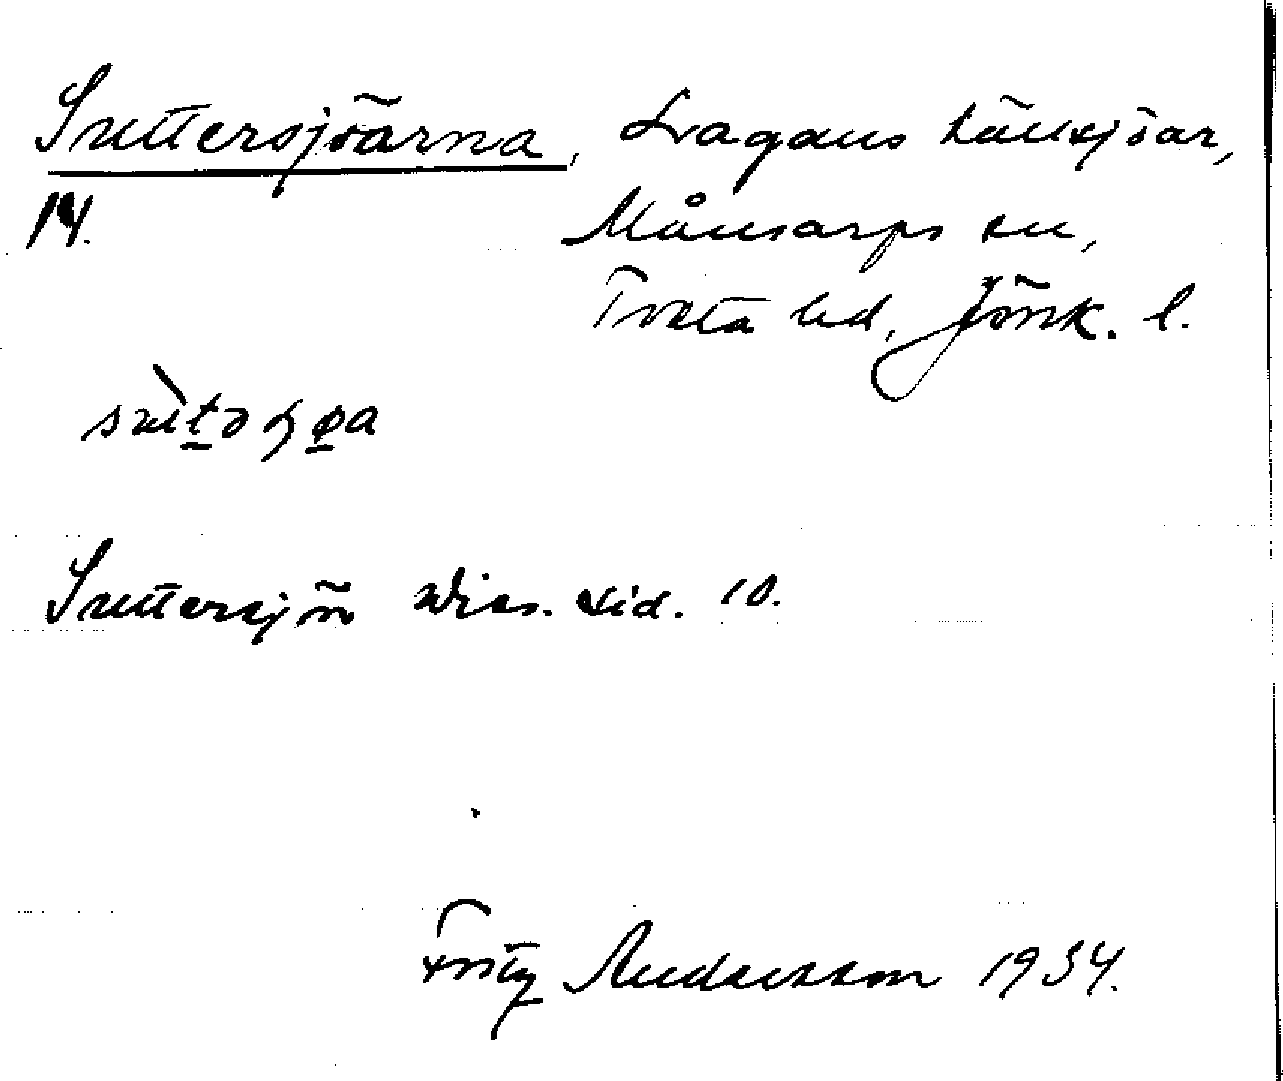 Suttersjöarna, Lagans källsjöar,
14. Månsarps sn,
Tveta hd, Jönk. l.
Suttersjön Wies. tid. 10.
Fritz Andersson 1934.